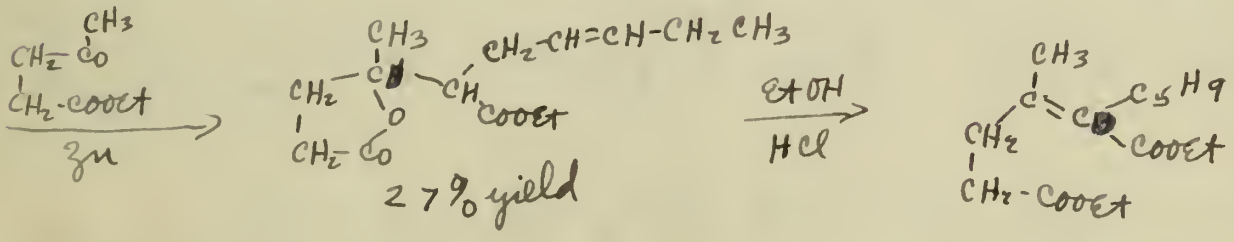 CH3
CH2-CO
CH2-COOEt
Zn
CH3
CH2-CH=CH-CH2 CH3
CH2
C
CH
COOEt
O
CH2-CO
27% yield
EtOH
HCl
CH3
C=C
C5H9
COOEt
CH2
CH2-COOEt